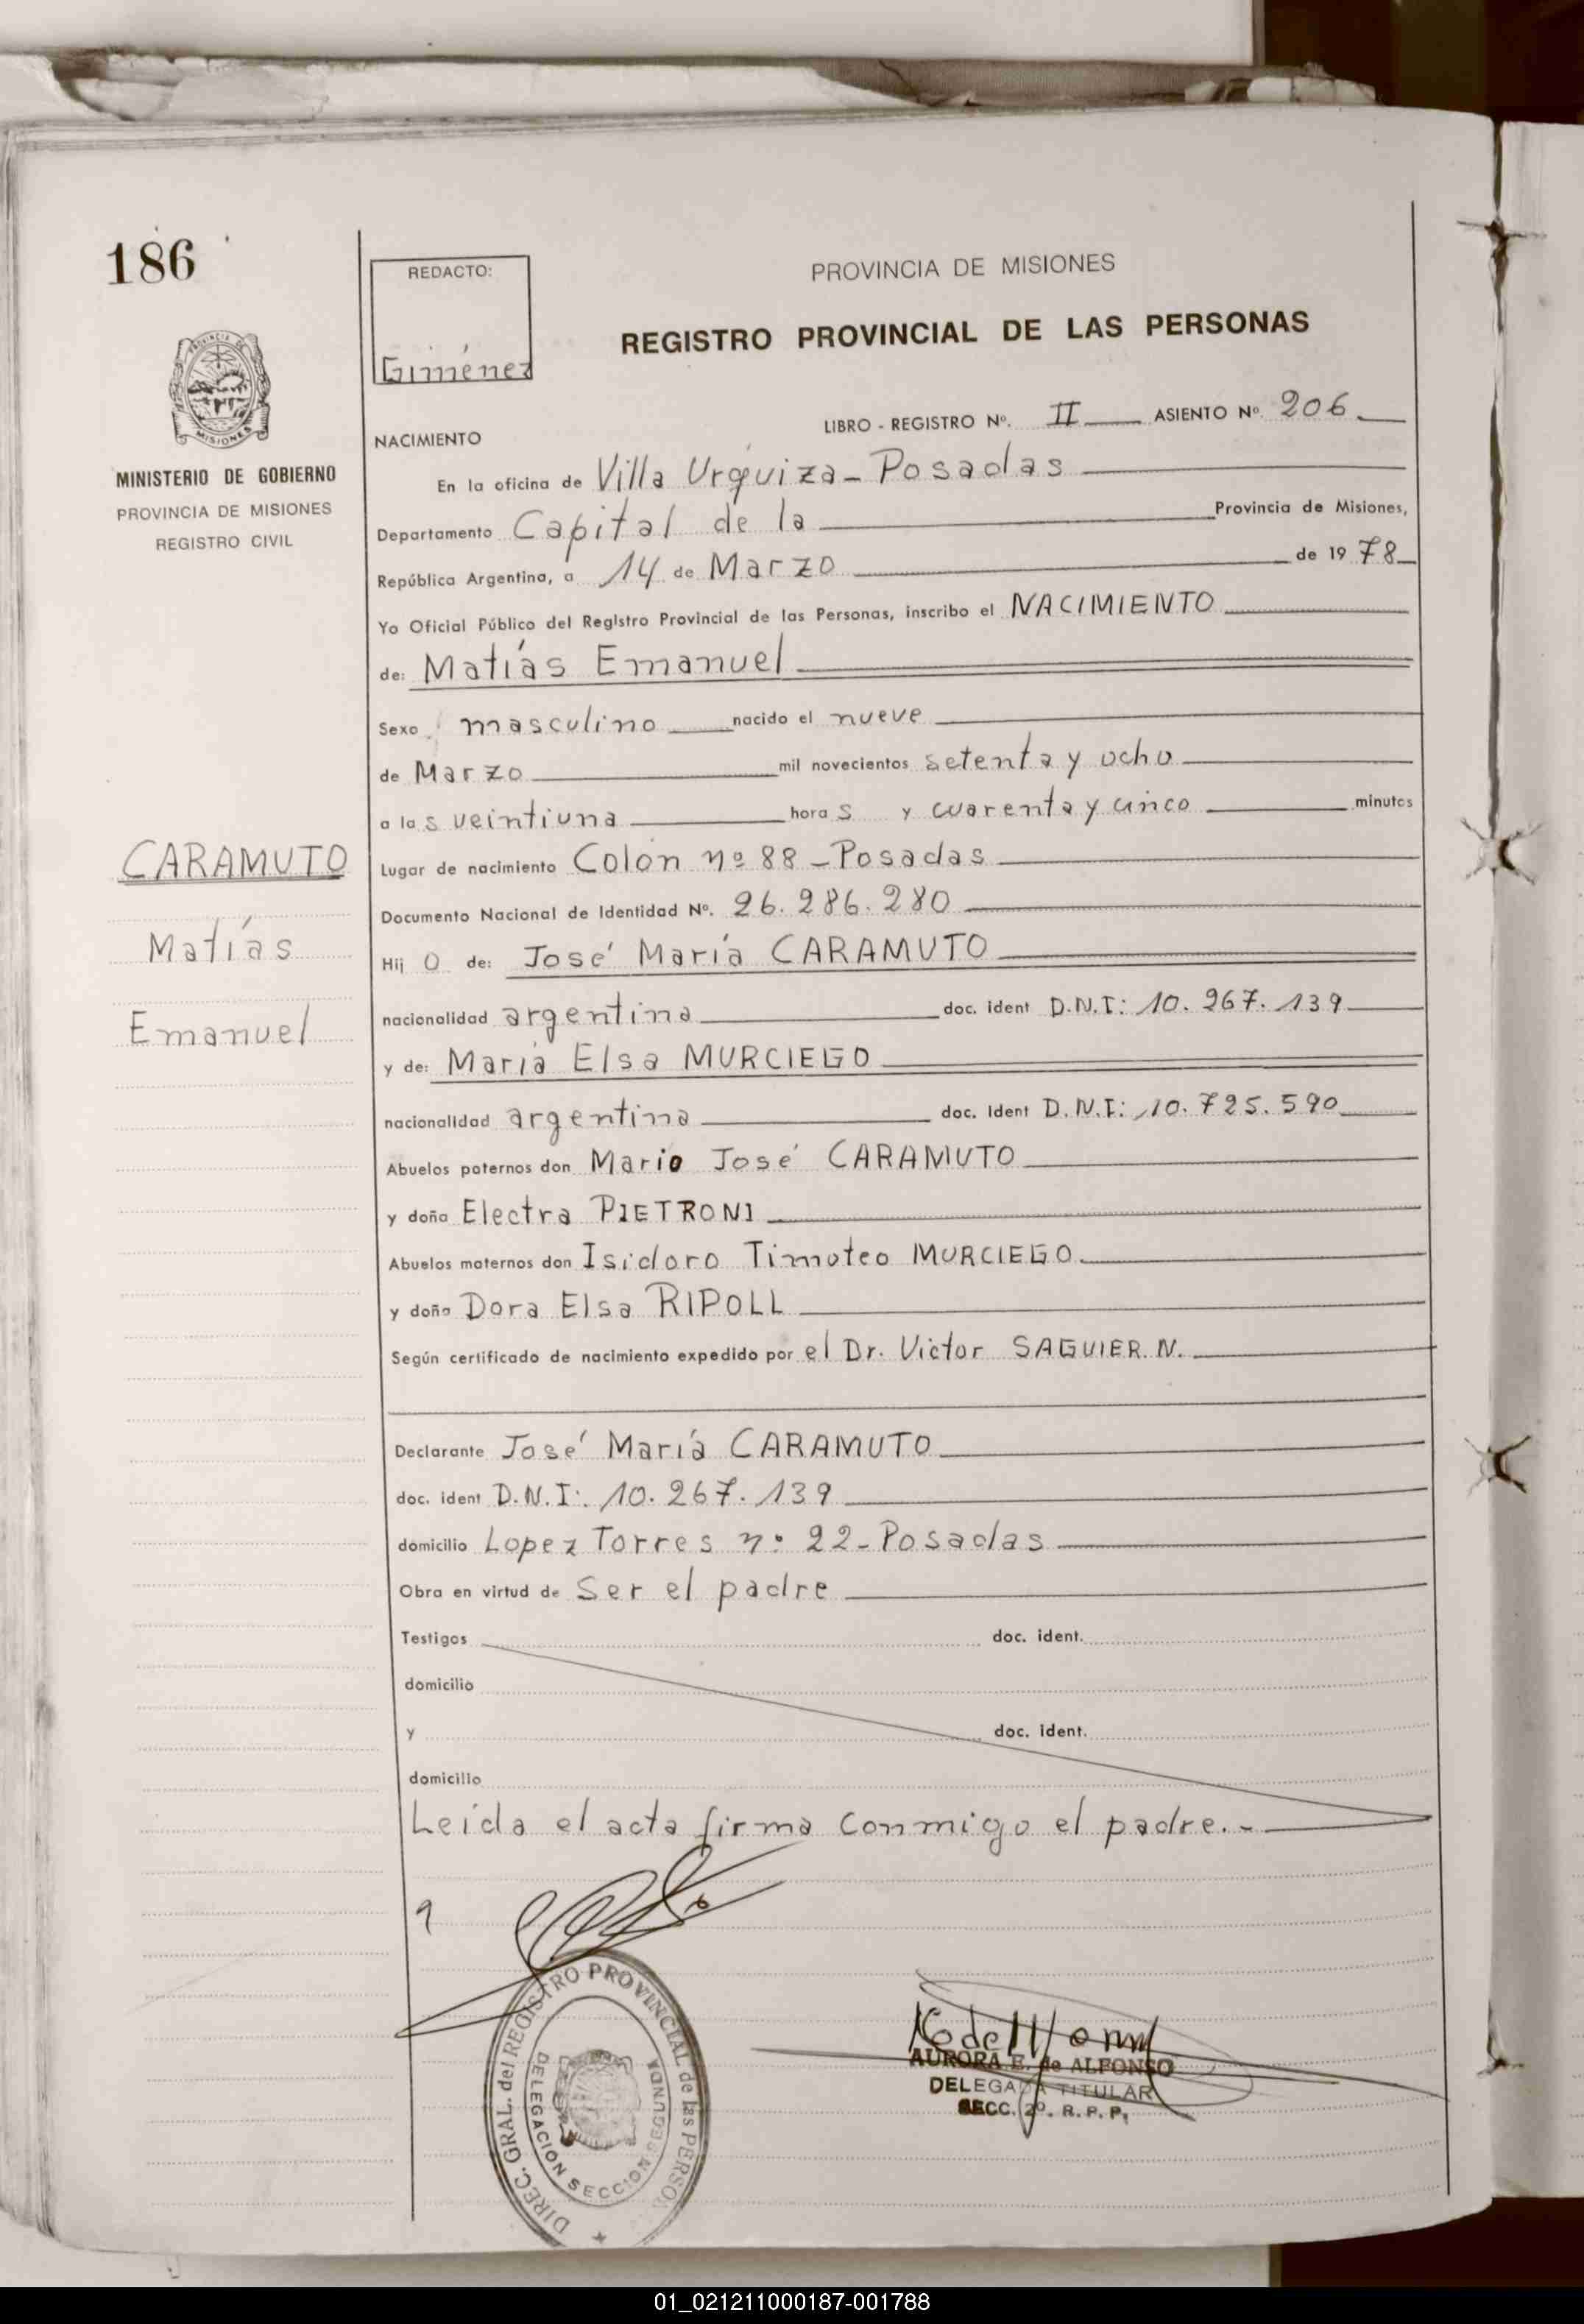 186
REDACTO:
Giménez
PROVINCIA DE MISIONES
REGISTRO PROVINCIAL DE LAS PERSONAS
PROVINCIA DE
MISIONES
MINISTERIO DE GOBIERNO
PROVINCIA DE MISIONES
REGISTRO CIVIL
CARAMUTO
Matías
Emanuel
LIBRO - REGISTRO Nº. II ASIENTO Nº. 206
NACIMIENTO
En la oficina de Villa Urquiza - Posadas
Departamento Capital de la Provincia de Misiones,
República Argentina, a 14 de Marzo de 1978
Yo Oficial Público del Registro Provincial de las Personas, inscribo el NACIMIENTO
de: Matías Emanuel
Sexo masculino nacido el nueve
de Marzo mil novecientos setenta y ocho
a las veintiuna horas y cuarenta y cinco minutos
Lugar de nacimiento Colón nº 88 - Posadas
Documento Nacional de Identidad Nº. 26.286.280
Hijo de: José María CARAMUTO
nacionalidad argentina doc. ident D.N.I: 10.267.139
y de: María Elsa MURCIEGO
nacionalidad argentina doc. ident D.N.I: 10.725.590
Abuelos paternos don Mario José CARAMUTO
y doña Electra PIETRONI
Abuelos maternos don Isidoro Timoteo MURCIEGO
y doña Dora Elsa RIPOLL
Según certificado de nacimiento expedido por el Dr. Victor SAGUIER. N.
Declarante José María CARAMUTO
doc. ident D.N.I: 10.267.139
domicilio Lopez Torres nº 22 - Posadas
Obra en virtud de Ser el padre
Testigos doc. ident.
domicilio
y doc. ident.
domicilio
Leída el acta firma conmigo el padre.-
DIREC. GRAL. del REGISTRO PROVINCIAL de las PERSO
DELEGACIÓN SECCIÓN SEGUNDA
AURORA E. de ALFONSO
DELEGADA TITULAR
SECC. 2º. R. P. P.
01_021211000187-001788